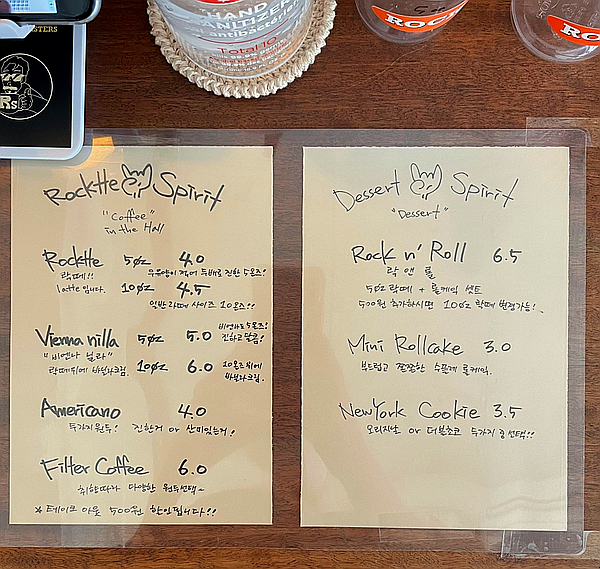 STERS
Rs
HAND
SANITIZER
antibactérien
Total 10
ROC
ROC
Rocktte Spirit
"Coffee"
in the Hall
Rocktte 5oz 4.0
락떼!! 우유양이 적어 두배로 진한 5온즈!
latte입니다. 10oz 4.5
일반라떼 사이즈 10온즈!!
Vienna nilla 5oz 5.0 비엔나도 5온즈!
진하고 달콤!
"비엔나 닐라"
락떼위에 바닐라크림. 10oz 6.0 10온즈위에
바닐라크림.
Americano 4.0
두가지원두! 진한거 or 산미있는거!
Filter Coffee 6.0
취향따라 다양한 원두선택~
* 테이크 아웃 500원 할인됩니다!!
Dessert Spirit
"Dessert"
Rock n' Roll 6.5
락 앤 롤
5oz 락떼 + 롤케잌 셋트
500원 추가하시면 10oz 락떼 변경가능!
Mini Rollcake 3.0
부드럽고 깔끔한 수플레 롤케잌.
NewYork Cookie 3.5
오리지날 or 더블초코 두가지 중 선택!!